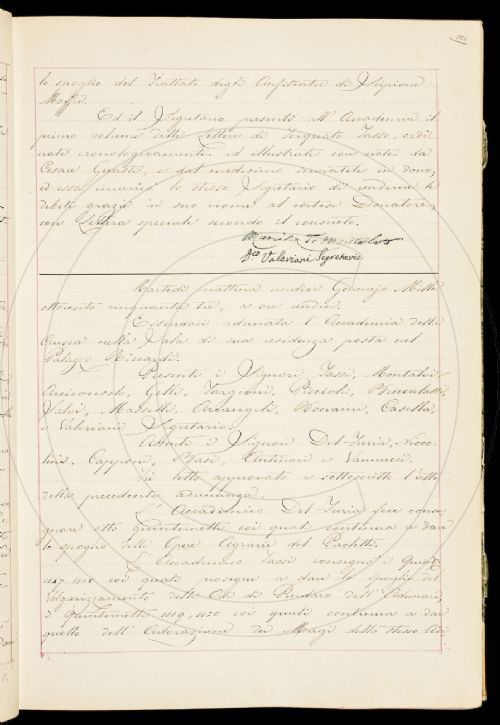 181
lo spoglio del Trattato degli Anfiteatri di Scipione
Maffei.
Ed il Segretario presentò all'Accademia il
primo volume delle Lettere di Torquato Tasso, ordi
nate cronologicamente ed illustrate con note da
Cesare Guasti, e dal medesimo inviatele in dono,
ed essa incaricò lo stesso Segretario di renderne le
debite grazie in suo nome al cortese Donatore,
con Lettera speciale secondo il consueto.
Dre Valeriani Segretario
Martedì mattina undici Gennajo Mille
ottocento cinquanta tre, a ore undici.
Essendosi adunata l'Accademia della
Crusca nella Sala di sua residenza posta nel
Palazzo Riccardi.
Presenti i Signori Tassi, Montalvi,
Arciconsolo, Gelli, Targioni, Piccioli, Brucalassi,
Salvi, Masselli, Arcangeli, Bonaini, Casella,
e Valeriani Segretario.
Assenti i Signori Del Furia, Nicco
lini, Capponi, Basi, Antinori e Vannucci.
Fu letto approvato e sottoscritto l'atto
della precedente adunanza.
L'Accademico Del Furia fece conse
gnare otto quinternetti coi quali continua a dare
lo spoglio delle Opere Agrarie del Paoletti.
L'Accademico Tassi consegnò i Quint.
1127, 1128 coi quali prosegue a dare lo spoglio del
volgarizzamento delle Odi di Pindaro dell'Adimari,
i quinternetti 1129, 1130 coi quali continua a dar
quello dell'Adorazione dei Magi dello stesso Adi